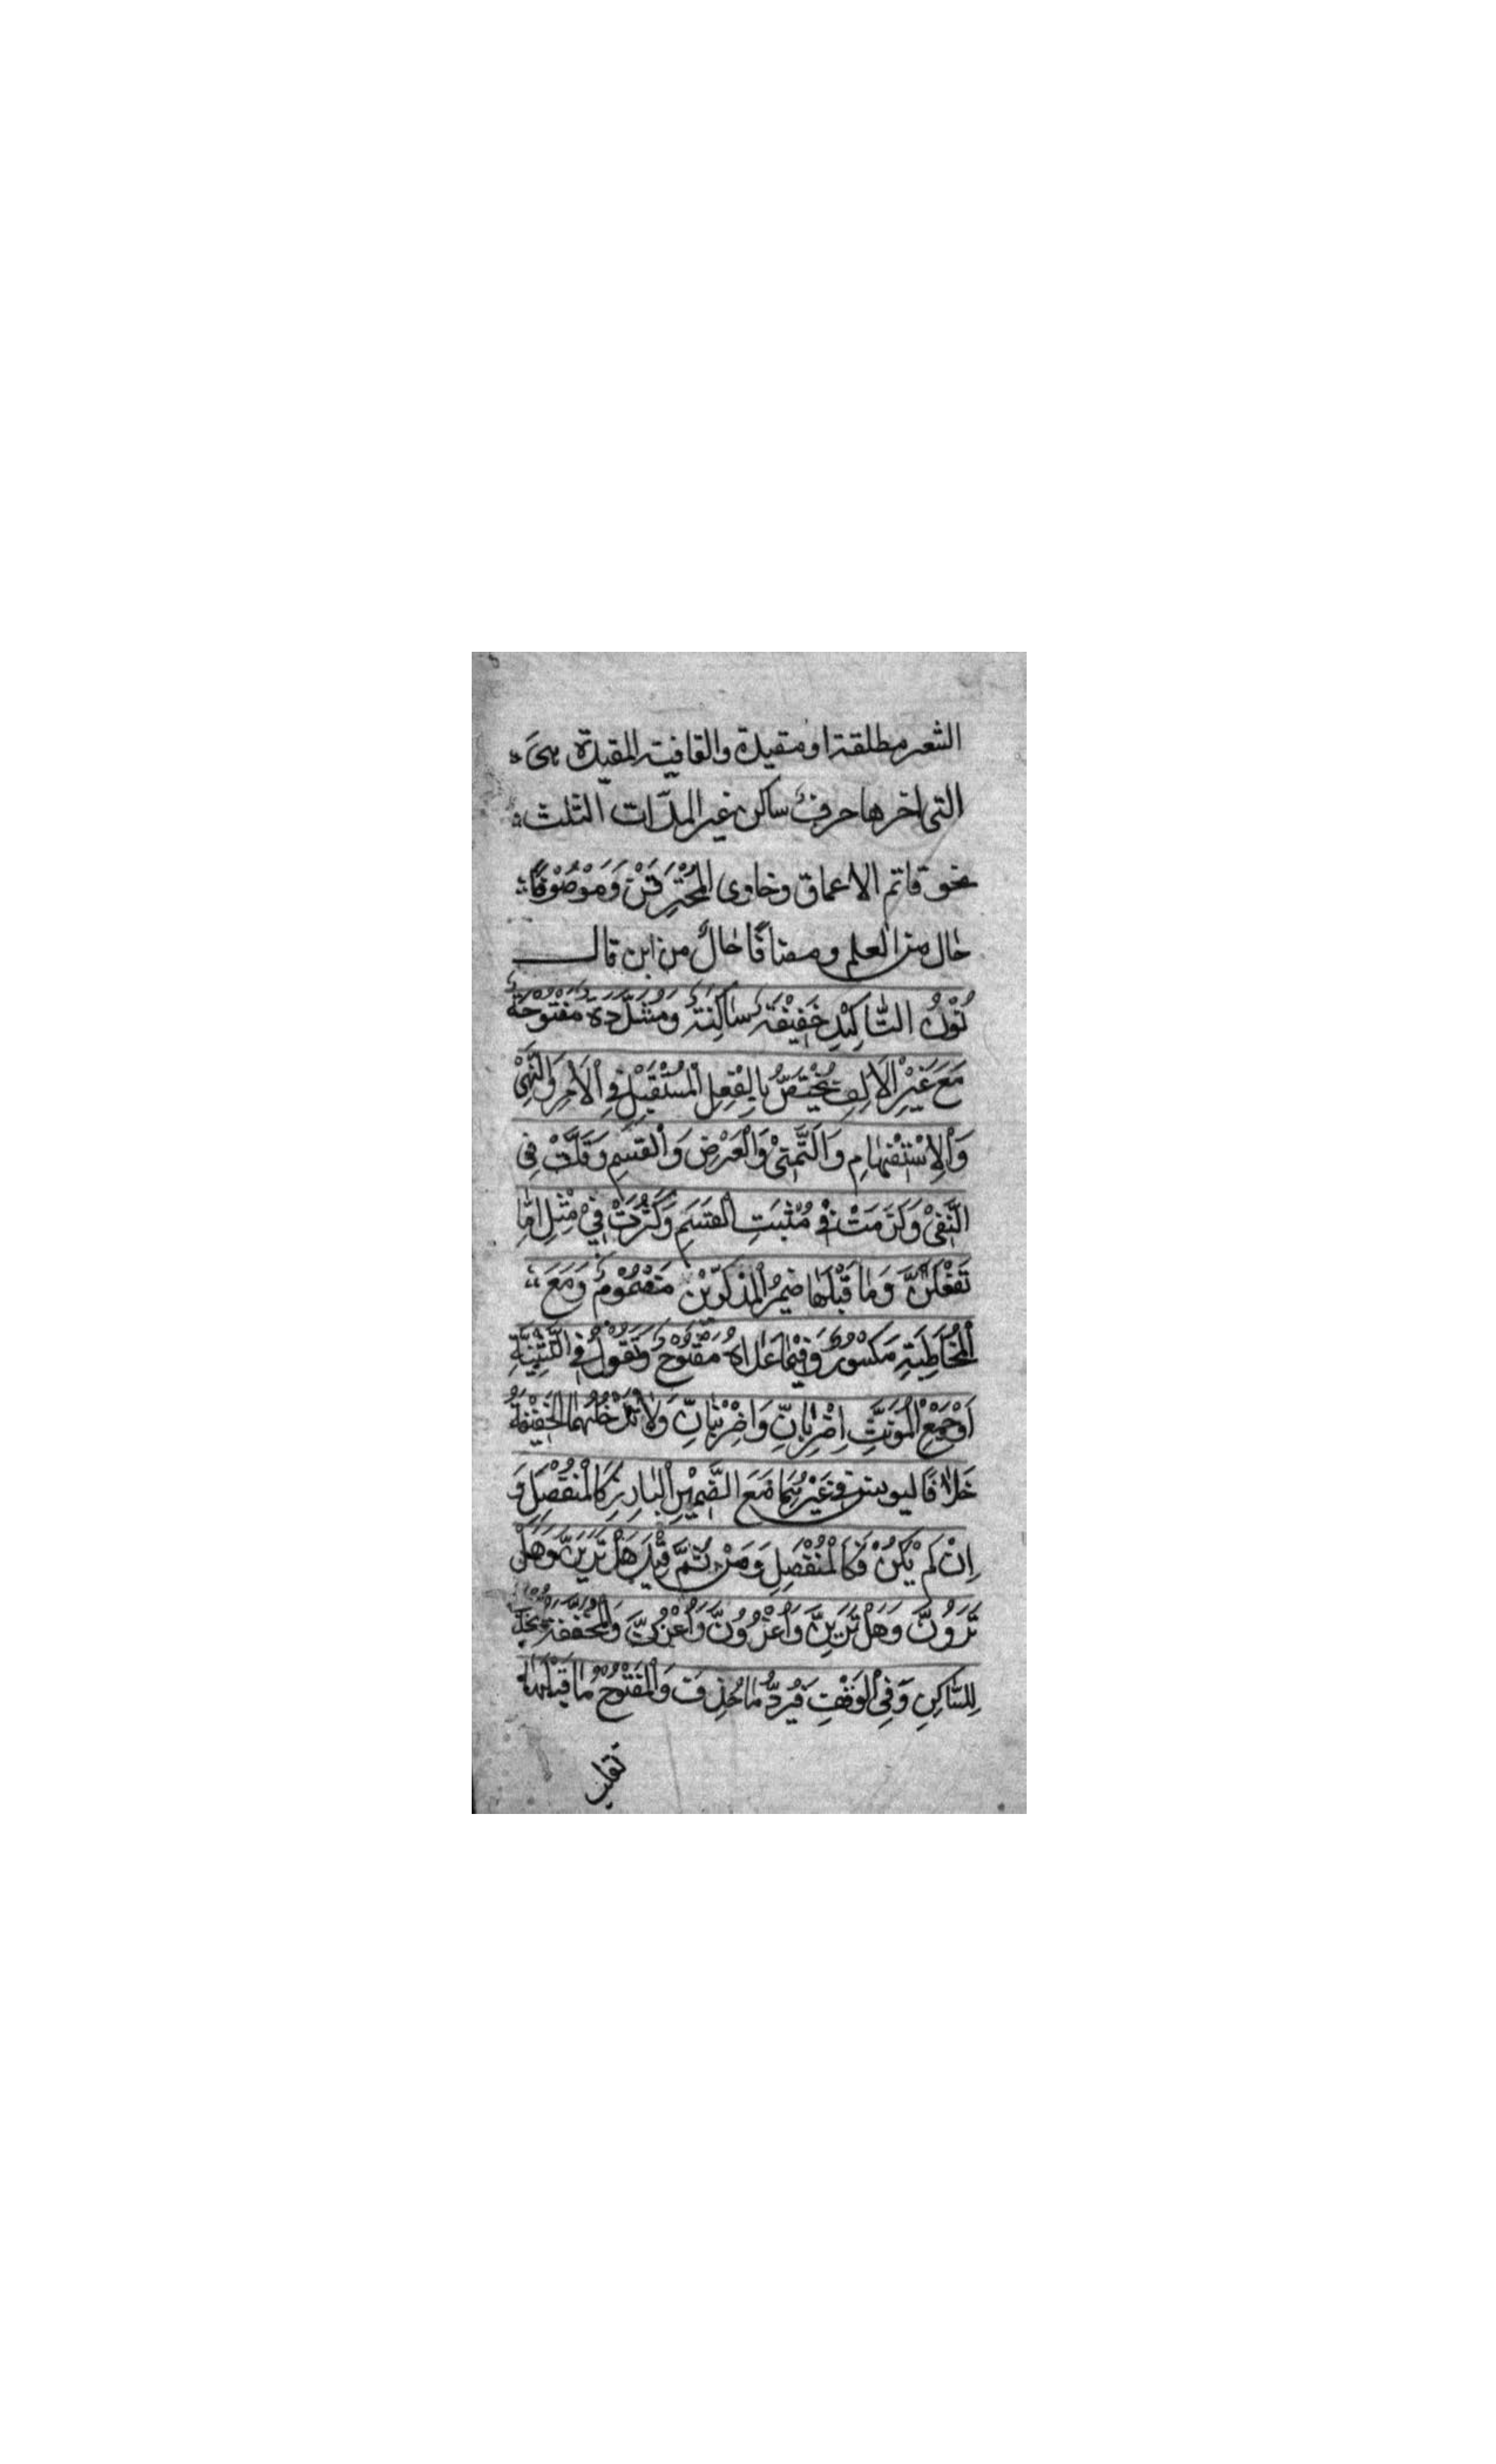 الشعر مطلقة او مقيدة والقافية المقيدة هى
التى اخرها حرف ساكن غير المدّات الثلث
نحو قاتم الاعماق وخاوى المُخْتَرَقَنْ وَمَوْصُوْفًا
حال من العلم ومضافًا حالٌ من ابن قال
نُوْنُ التَّاكِيْدِ خَفِيْفَةٌ سَاكِنَةٌ وَمُشَدَّدَةٌ مَفْتُوْحَةٌ
مَعَ غَيْرِ الْاَلِفِ يُخْتَصُّ بِالْفِعْلِ الْمُسْتَقْبِلِ فِي الْاَمْرِ وَالنَّهْىِ
وَالْاِسْتِفْهَامِ وَالتَّمَنِّىْ وَالْعَرْضِ وَالْقَسَمِ وَقَلَّتْ فِى
النَّفْىِ وَلَزِمَتْ فِى مُثْبَتِ الْقَسَمِ وَكَثُرَتْ فِيْ مِثْلِ اِمَّا
تَفْعَلَنَّ وَمَا قَبْلَهَا ضَمِيْرُ الْمُذَكَّرِيْنَ مَضْمُوْمٌ وَمَعَ
الْمُخَاطَبَةِ مَكْسُوْرٌ وَفِيْمَا عَدَاهُ مَفْتُوْحٌ وَتَقُوْلُ فِى التَّثْنِيَّةِ
اَوْ جَمْعِ الْمُوَنَّثِ اِضْرِبَانِّ وَاضْرِبْنَانِّ وَلَا تَدْخُلُهُمَا الْخَفِيْفَةُ
خَلَافًا ليونس فِى غَيْرِهِمَا مَعَ الضَّمِيْرِ الْبَارِزِ كَالْمُنْفَصِلِ وَ
اِنْ لَمْ يَكُنْ فَكَالْمُنْفَصِلِ وَمِنْ ثُمَّ قِيْلَ هَلْ تَرَيِنَّ وَهَلْ
تَرَوُنَّ وَهَلْ تَرَيِنَّ وَاغْزُوُنَّ وَاغْزُنَّ وَالْمُخَفَّفَةُ تُحْذَفُ
لِلسَّاكِنِ وَفِى الْوَقْفِ فَيُرَدُّ مَا حُذِفَ وَالْمَفْتُوْحُ مَا قَبْلَهَا
تقلب